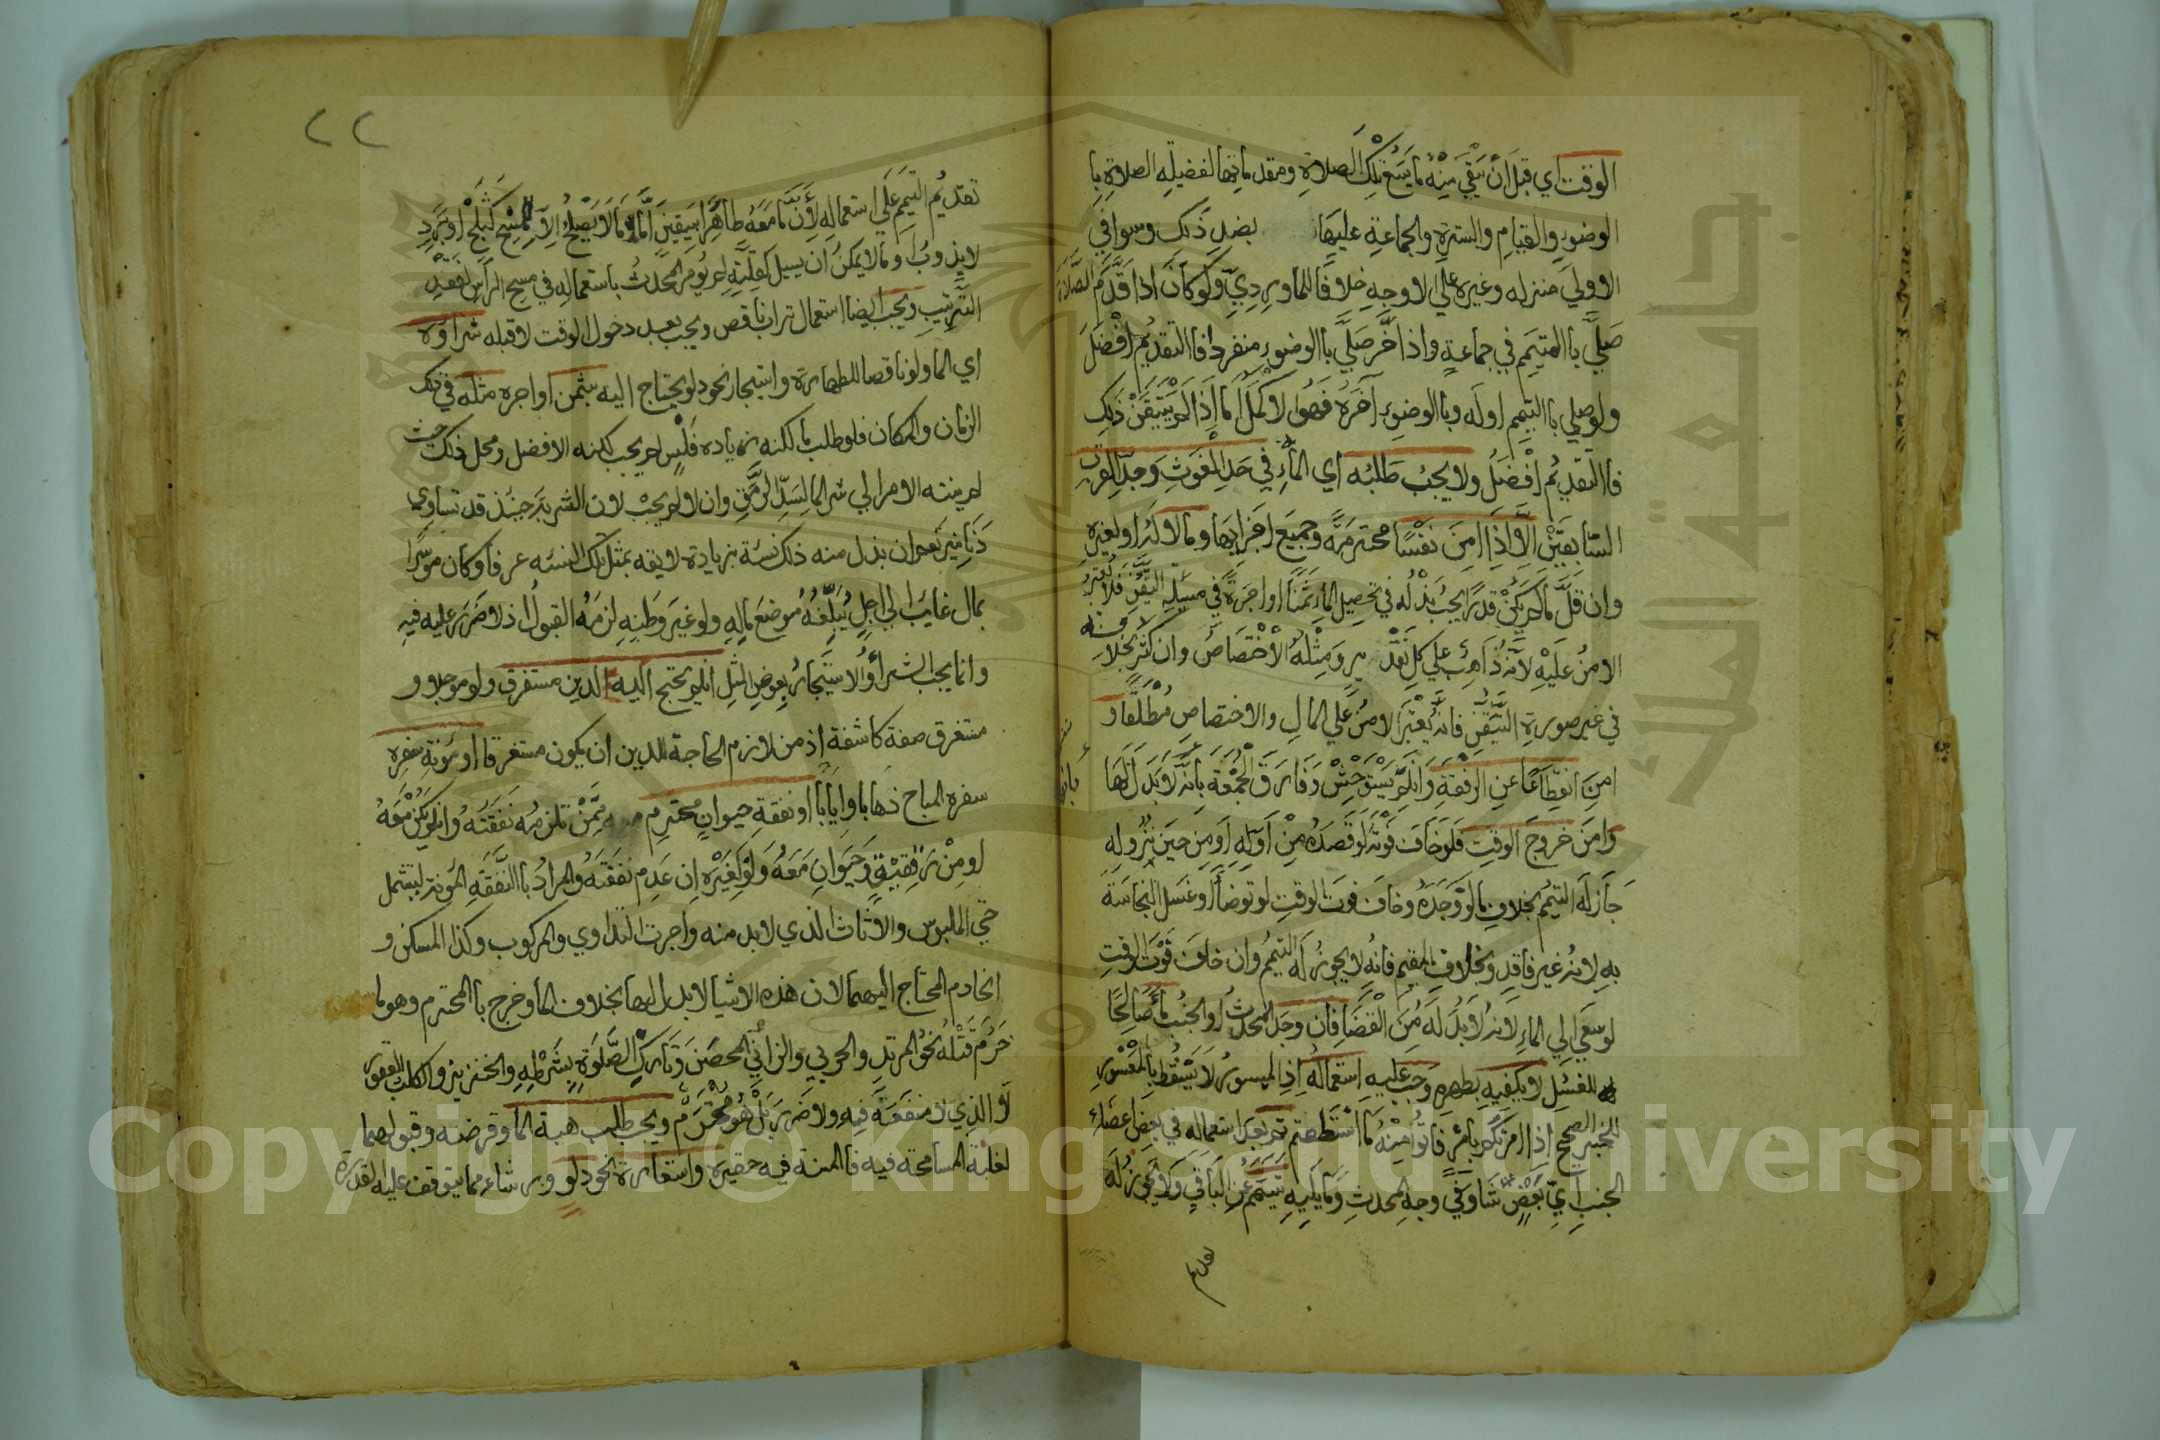 الوقت اي قبل ان يبقي منه ما يسع تلك الصلاة ومقدماتها لفضيلة الصلاة با
الوضوء والقيام والسترة والجماعة عليها بضد ذلك وسوا في
الاولي منزله وغيره علي الاوجه خلافا للماوردي ولو كان اذا قدم الصلاة
صلي باالتيمم في جماعة واذا اخر صلي باالوضوء منفردا فاالتقديم افضل
ولو صلي باالتيمم اوله وباالوضوء اخره فهو الاكمل اما اذا لم يتيقن ذلك
فاالتقديم افضل ولا يجب طلبه اي الماء في حد الغوث وحد القرب
السابقين الا اذا امن نفسا محترمة وجميع اجزايها ومالا له او لغيره
وان قل ما لم يكن قدرا يجب بذله في تحصيل الماء ثمنا او اجرة في مسئلة التيقن فلا يعتبر
الامن عليه لانه ذاهب علي كل تقدير ومثله الاختصاص وان كثر بخلافه
في غير صورة التيقن فانه يعتبر الامن علي المال والاختصاص مطلقا و
امن انقطاعا عن الرفقة وان لم يستوحش وفارق الجمعة بانه لا بدل لها
وامن خروج الوقت فلو خاف فوته لو قصده من اوله او من حين نزوله
جاز له التيمم بخلاف ما لو وجده وخاف فوت الوقت لو توضا او غسل النجاسة
به لانه غير فاقد وبخلاف المقيم فانه لا يجوز له التيمم وان خاف فوت الوقت
لو سعي الي الماء لانه لا بد له من القضا فان وجد المحدث او الجنب ماء صالحا
للغسل لا يكفيه بطهره وجب عليه استعماله اذ الميسور لا يسقط باالمعسور
للخبر الصحيح اذا امرتكم بامر فاتوا منه ما استطعتم ثم بعد استعماله في بعض اعضاء
الجنب اي بعض شا وفي وجه المحدث وما يليه تيمم عن الباقي ولا يجوز له
تقديم
٢٢
تقديم التيمم علي استعماله لان ما معه طاهرا بيقين اما ما لا يصلح الا للمسح كثلج او برد
لا يذوب وما لا يمكن ان يسيل لقلته لم يؤمر المحدث باستعماله في مسح الراس لفقد
الترتيب ويجب ايضا استعمال تراب ناقص ويجب بعد دخول الوقت لا قبله شراوه
اي الما ولو ناقصا للطهارة واستيجار نحو دلو يحتاج اليه بثمن او اجرة مثله في ذلك
الزمان والمكان فلو طلب مالكه زيادة فلس لم يجب لكنه الافضل ومحل ذلك حيث
لم ينته الامر الي شر الما لسد الرمق وان لا لم يجب لان الشربة حينئذ قد تساوي
دنانير نعم ان بذل منه ذلك نسئة بزيادة لايقه بمثل تلك النسئه عرفا وكان موسرا
بمال غايب الي اجل يبلغه موضع ماله ولو غير وطنه لزمه القبول اذ لا ضرر عليه فيه
وانما يجب الشراء والاستيجار بعوض المثل ان لم يحتج اليه لدين مستغرق ولو موجلا و
مستغرق صفة كاشفة اذ من لازم الحاجة للدين ان يكون مستغرقا او مؤنة سفره
سفره المباح ذهابا وايابا او نفقة حيوان محترم معه ممن تلزمه نفقته وان لم يكن معه
او من رفيقه وحيوان معه ولو لغيره ان عدم نفقته والمراد باالنفقة المونة ليشمل
حتي الملبوس والاثاث الذي لا بد منه واجرت التداوي والمركوب وكذا المسكن و
الخادم المحتاج اليهما لان هذه الاشيا لا بدل لها بخلاف الما وخرج باالمحترم وهو ما
حرم قتله نحو المرتد والحربي والزاني المحصن وتارك الصلوة بشرطه والخنزير والكلب العقور
لا الذي لا منفعة فيه ولا ضرر بل هو محترم ويجب طلب هبة الما وقرضه وقبولهما
لغلبة المسامحة فيه فاالمنة فيه حقيرة واستعارة نحو دلو ورشاء مما يتوقف عليه القدرة
Copyright © King Saud University
جامعة الملك سعود